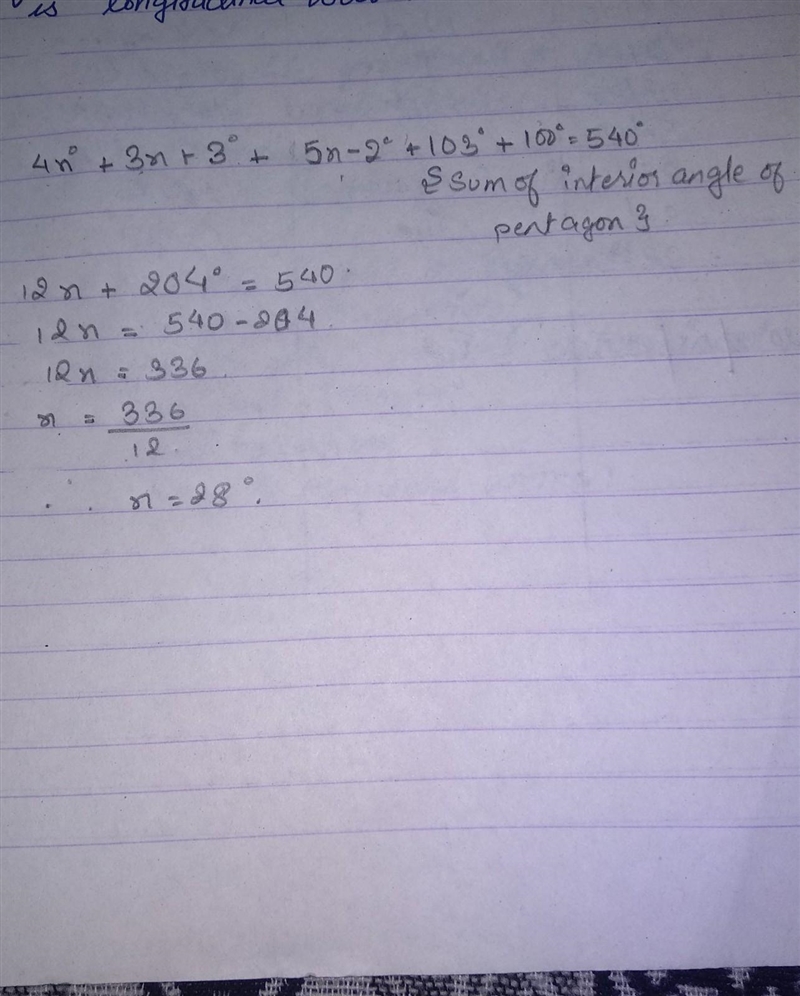 is longitudinal
4x° + 3x + 3° + 5x - 2° + 103° + 100° = 540°
{ Sum of interior angle of
pentagon }
12x + 204° = 540.
12x = 540 - 204
12x = 336
x = 336
12
∴ x = 28°.